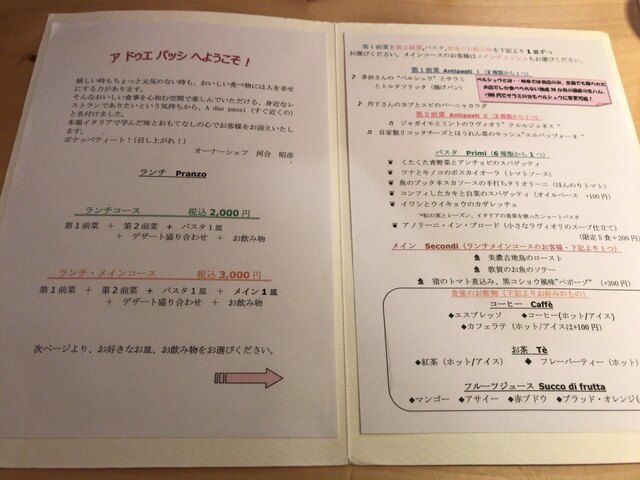 ア ドゥエ パッシ へようこそ！
嬉しい時もちょっと元気のない時も、おいしい食べ物には人を幸せにする力があります。
そんなおいしい食事を心和む空間で楽しんでいただける、身近なレストランでありたいという気持ちから、A due passi (すぐ近くの)と名付けました。
本場イタリアで学んだ味とおもてなしの心でお客様をお迎えいたします。
ボナッペティート！(召し上がれ！)
オーナーシェフ 河合 昭彦
ランチ Pranzo
ランチコース 税込 2,000 円
第１前菜 ＋ 第２前菜 ＋ パスタ１皿
＋ デザート盛り合わせ ＋ お飲み物
ランチ・メインコース 税込 3,000 円
第１前菜 ＋ 第２前菜 ＋ パスタ１皿 ＋ メイン１皿
＋ デザート盛り合わせ ＋ お飲み物
次ページより、お好きなお皿、お飲み物をお選びください。
第１前菜と第２前菜,パスタ,食後のお飲み物を下記より１皿ずつ
お選びください。メインコースのお客様はメインディッシュもお選びください。
第１前菜 Antipasti Ⅰ (２種類から１つ)
♪ 多田さんの "ペルシュウ" とサラミ
とトルタフリッタ (揚げパン)
♪ 丹下さんのカブとエビのバーニャカウダ
第２前菜 Antipasti Ⅱ (２種類から１つ)
♫ ジャガイモとミントのラヴィオリ" クルルジョネス "
♫ 自家製リコッタチーズとほうれん草のキッシュ"エルバッツォーネ "
パスタ Primi (６種類から１つ)
くたくた青野菜とアンチョビのスパゲッティ
ツナとキノコのボスカイオーラ (トマトソース)
魚のプッタネスカソースの手打ちタリオリーニ (ほんのりトマト)
コンフィしたカキと白菜のスパゲッティ (オイルベース +100 円)
イワシとウイキョウのカザレッチェ
松の実とレーズン、イタリアの香草を使ったショートパスタ
アノリーニ・イン・ブロード (小さなラヴィオリのスープ仕立て)
(限定５食＋200 円)
メイン Secondi (ランチメインコースのお客様・下記より１つ)
美濃古地鳥のロースト
敦賀のお魚のソテー
猪のトマト煮込み、黒コショウ風味"ペポーゾ" (+300 円)
食後のお飲物 (下記よりお好みのもの)
コーヒー Caffè
◆エスプレッソ ◆コーヒー(ホット/アイス)
◆カフェラテ (ホット/アイスは+100 円)
お茶 Tè
◆紅茶 (ホット/アイス) ◆ フレーバーティー (ホット)
フルーツジュース Succo di frutta
◆マンゴー ◆アサイー ◆赤ブドウ ◆ブラッド・オレンジ(